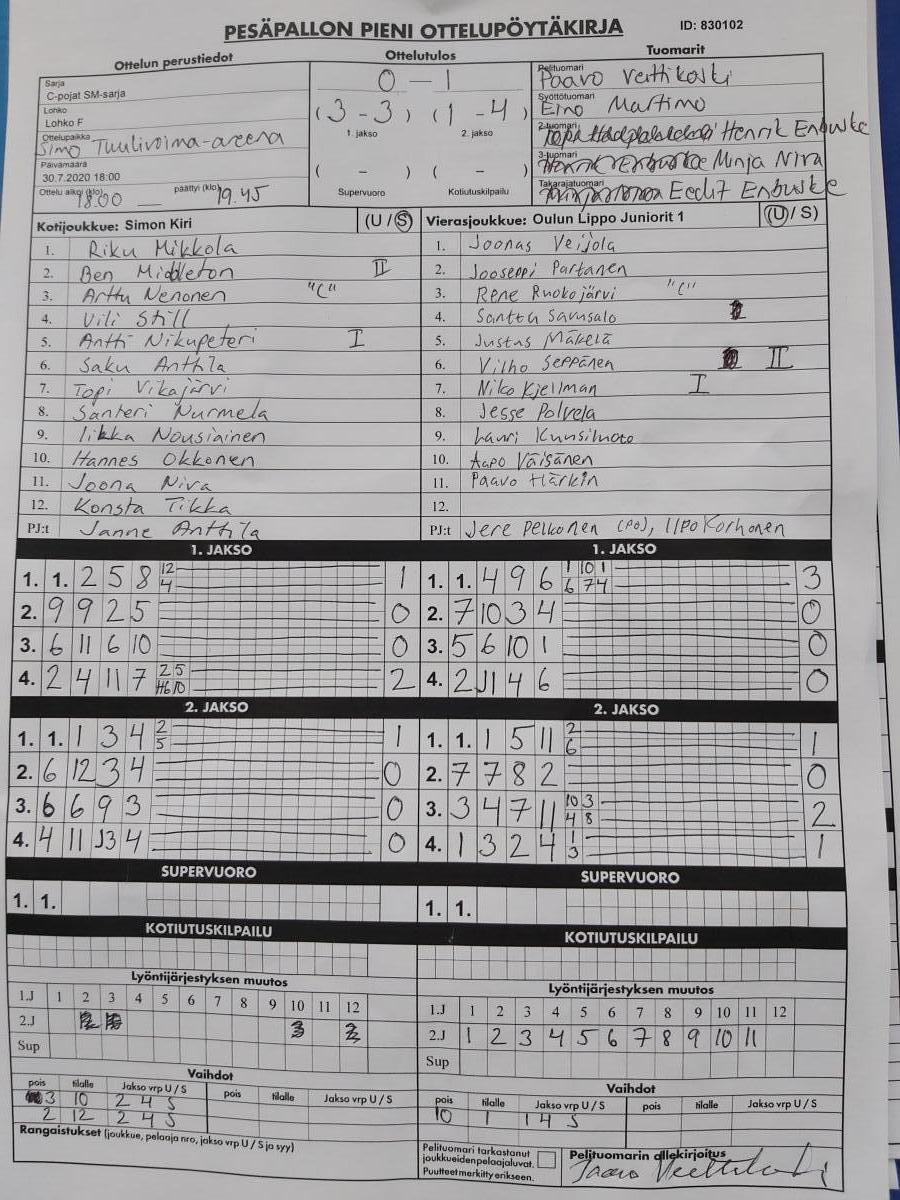 PESÄPALLON PIENI OTTELUPÖYTÄKIRJA ID: 830102
Ottelun perustiedot Ottelutulos Tuomarit
Sarja
C-pojat SM-sarja
Lohko
Lohko F
Ottelupaikka
Simo Tuulivoima-areena
Päivämäärä
30.7.2020 18:00
Ottelu alkoi (klo) päättyi (klo)
18.00 — 19.45
0 - 1
(3 - 3) (1 - 4)
1. jakso 2. jakso
( - ) ( - )
Supervuoro Kotiutuskilpailu
Pelituomari
Paavo Verttikoski
Syöttötuomari
Eino Martimo
2-tuomari
Henrik Enbuske
3-tuomari
Minja Niva
Takarajatuomari
Eedit Enbuske
Kotijoukkue: Simon Kiri (U / S)
1. Riku Mikkola
2. Ben Middleton II
3. Arttu Nenonen "C"
4. Vili Still
5. Antti Nikupeteri I
6. Saku Anttila
7. Topi Vikajärvi
8. Santeri Nurmela
9. Iikka Nousiainen
10. Hannes Okkonen
11. Joona Niva
12. Konsta Tikka
PJ:t Janne Anttila
Vierasjoukkue: Oulun Lippo Juniorit 1 (U / S)
1. Joonas Veijola
2. Jooseppi Partanen
3. Rene Ruokojärvi "C"
4. Santtu Samsalo
5. Justus Mäkelä
6. Vilho Seppänen II
7. Niko Kjellman I
8. Jesse Polvela
9. Lauri
10. Aapo Väisänen
11. Paavo Härkin
12.
PJ:t Jere Pelkonen (PJ), Ilpo Korhonen
1. JAKSO
1. 1. 2 5 8 12 4 1
2. 9 9 2 5 0
3. 6 11 6 10 0
4. 2 4 11 7 2 5 6 10 2
1. JAKSO
1. 1. 4 9 6 1 10 1 6 7 4 3
2. 7 10 3 4 0
3. 5 6 10 1 0
4. 2 11 4 6 0
2. JAKSO
1. 1. 1 3 4 2 5 1
2. 6 12 3 4 0
3. 6 6 9 3 0
4. 4 11 3 4 0
2. JAKSO
1. 1. 1 5 11 2 6 1
2. 7 7 8 2 0
3. 3 4 7 11 10 3 4 8 2
4. 1 3 2 4 1 3 1
SUPERVUORO SUPERVUORO
1. 1. 1. 1.
KOTIUTUSKILPAILU KOTIUTUSKILPAILU
Lyöntijärjestyksen muutos
1.J 1 2 3 4 5 6 7 8 9 10 11 12
2.J 3 2
Sup
Vaihdot
pois tilalle Jakso vrp U / S pois tilalle Jakso vrp U / S
3 10 2 4 S
2 12 2 4 S
Rangaistukset (joukkue, pelaaja nro, jakso vrp U / S ja syy)
Lyöntijärjestyksen muutos
1.J 1 2 3 4 5 6 7 8 9 10 11 12
2.J 1 2 3 4 5 6 7 8 9 10 11
Sup
Vaihdot
pois tilalle Jakso vrp U / S pois tilalle Jakso vrp U / S
10 1 1 4 S
Pelituomari tarkastanut
joukkueiden pelaajaluvat.
Puutteet merkitty erikseen.
Pelituomarin allekirjoitus